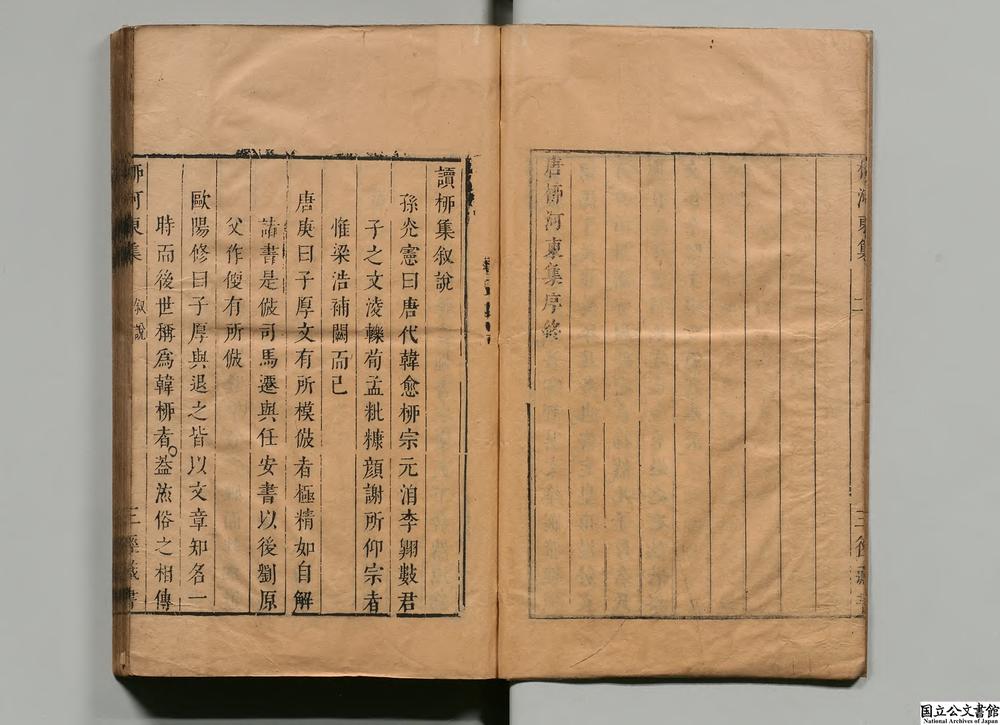 柳河東集
二
三徑藏書
唐柳河東集序終
讀柳集叙說
孫光憲曰唐代韓愈柳宗元洎李翺數君
子之文淩轢荀孟粃糠顔謝所仰宗者
惟梁浩補闕而已
唐庚曰子厚文有所模倣者極精如自解
諸書是倣司馬遷與任安書以後劉原
父作傁有所倣
歐陽修曰子厚與退之皆以文章知名一
時而後世稱爲韓柳者蓋流俗之相傳
柳河東集
叙說
三徑藏書
国立公文書館
National Archives of Japan